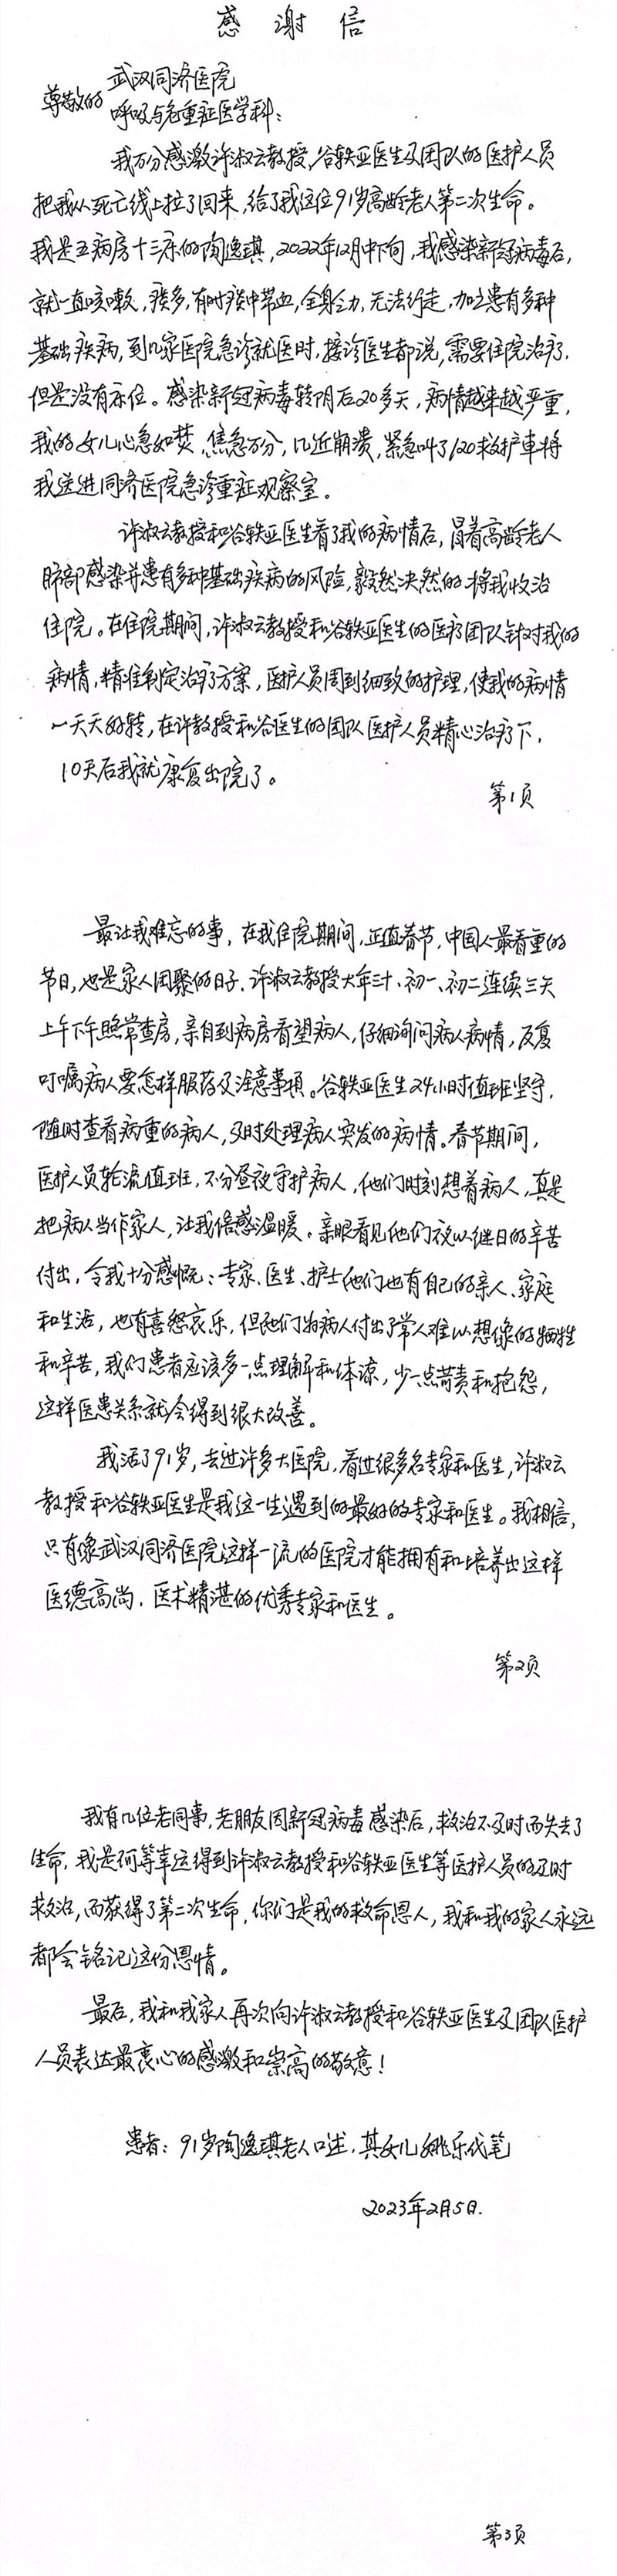 感谢信
尊敬的 武汉同济医院
呼吸与危重症医学科：
我万分感激许淑云教授，谷轶亚医生及团队的医护人员
把我从死亡线上拉了回来，给了我这位91岁高龄老人第二次生命。
我是五病房十三床的陶逸琪，2022年12月中下旬，我感染新冠病毒后，
就一直咳嗽，痰多，有时痰中带血，全身乏力，无法行走，加之患有多种
基础疾病，到几家医院急诊就医时，接诊医生都说，需要住院治疗，
但是没有床位。感染新冠病毒转阴后20多天，病情越来越严重，
我的女儿心急如焚，焦急万分，几近崩溃，紧急叫了120救护车将
我送进同济医院急诊重症观察室。
许淑云教授和谷轶亚医生看了我的病情后，冒着高龄老人
肺部感染并患有多种基础疾病的风险，毅然决然的将我收治
住院。在住院期间，许淑云教授和谷轶亚医生的医疗团队针对我的
病情，精准制定治疗方案，医护人员周到细致的护理，使我的病情
一天天好转，在许教授和谷医生的团队医护人员精心治疗下，
10天后我就康复出院了。
第1页
最让我难忘的事，在我住院期间，正值春节，中国人最看重的
节日，也是家人团聚的日子，许淑云教授大年三十、初一、初二连续三天
上午下午照常查房，亲自到病房看望病人，仔细询问病人病情，反复
叮嘱病人要怎样服药及注意事项。谷轶亚医生24小时值班坚守，
随时查看病重的病人，及时处理病人突发的病情。春节期间，
医护人员轮流值班，不分昼夜守护病人，他们时刻想着病人，真是
把病人当作家人，让我倍感温暖。亲眼看见他们夜以继日的辛苦
付出，令我十分感慨：专家、医生、护士他们也有自己的亲人、家庭
和生活，也有喜怒哀乐，但他们为病人付出了常人难以想像的牺牲
和辛苦，我们患者应该多一点理解和体谅，少一点苛责和抱怨，
这样医患关系就会得到很大改善。
我活了91岁，去过许多大医院，看过很多名专家和医生，许淑云
教授和谷轶亚医生是我这一生遇到的最好的专家和医生。我相信，
只有像武汉同济医院这样一流的医院才能拥有和培养出这样
医德高尚，医术精湛的优秀专家和医生。
第2页
我有几位老同事，老朋友因新冠病毒感染后，救治不及时而失去了
生命，我是何等幸运得到许淑云教授和谷轶亚医生等医护人员的及时
救治，而获得了第二次生命，你们是我的救命恩人，我和我的家人永远
都会铭记这份恩情。
最后，我和我家人再次向许淑云教授和谷轶亚医生及团队医护
人员表达最衷心的感激和崇高的敬意！
患者：91岁陶逸琪老人口述，其女儿姚乐代笔
2023年2月5日.
第3页